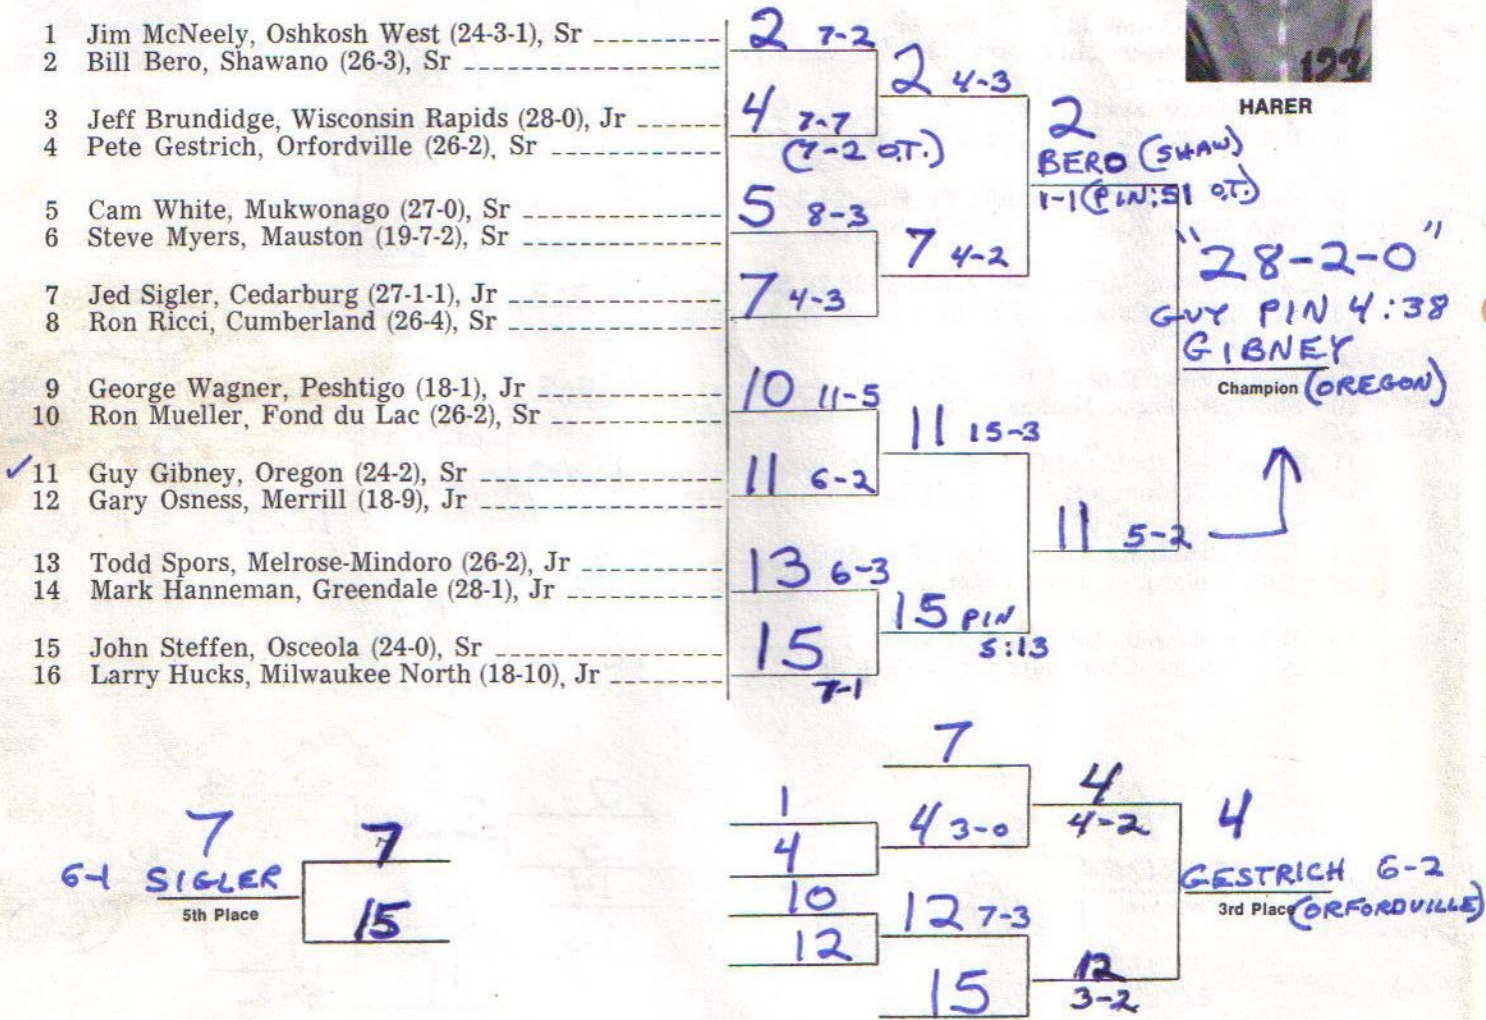 1 Jim McNeely, Oshkosh West (24-3-1), Sr
2 Bill Bero, Shawano (26-3), Sr
3 Jeff Brundidge, Wisconsin Rapids (28-0), Jr
4 Pete Gestrich, Orfordville (26-2), Sr
5 Cam White, Mukwonago (27-0), Sr
6 Steve Myers, Mauston (19-7-2), Sr
7 Jed Sigler, Cedarburg (27-1-1), Jr
8 Ron Ricci, Cumberland (26-4), Sr
9 George Wagner, Peshtigo (18-1), Jr
10 Ron Mueller, Fond du Lac (26-2), Sr
✓11 Guy Gibney, Oregon (24-2), Sr
12 Gary Osness, Merrill (18-9), Jr
13 Todd Spors, Melrose-Mindoro (26-2), Jr
14 Mark Hanneman, Greendale (28-1), Jr
15 John Steffen, Osceola (24-0), Sr
16 Larry Hucks, Milwaukee North (18-10), Jr
2 7-2
4 7-7
(7-2 O.T.)
5 8-3
7 4-3
10 11-5
11 6-2
13 6-3
15
7-1
2 4-3
7 4-2
11 15-3
15 PIN
5:13
2
BERO (SHAW)
1-1 (PIN :51 O.T.)
11 5-2
123
HARER
"28-2-0"
GUY PIN 4:38
GIBNEY
Champion (OREGON)
7
6-1 SIGLER
5th Place
7
15
1
4
10
12
7
4 3-0
12 7-3
15
4
4-2
12
3-2
4
GESTRICH 6-2
3rd Place (ORFORDVILLE)